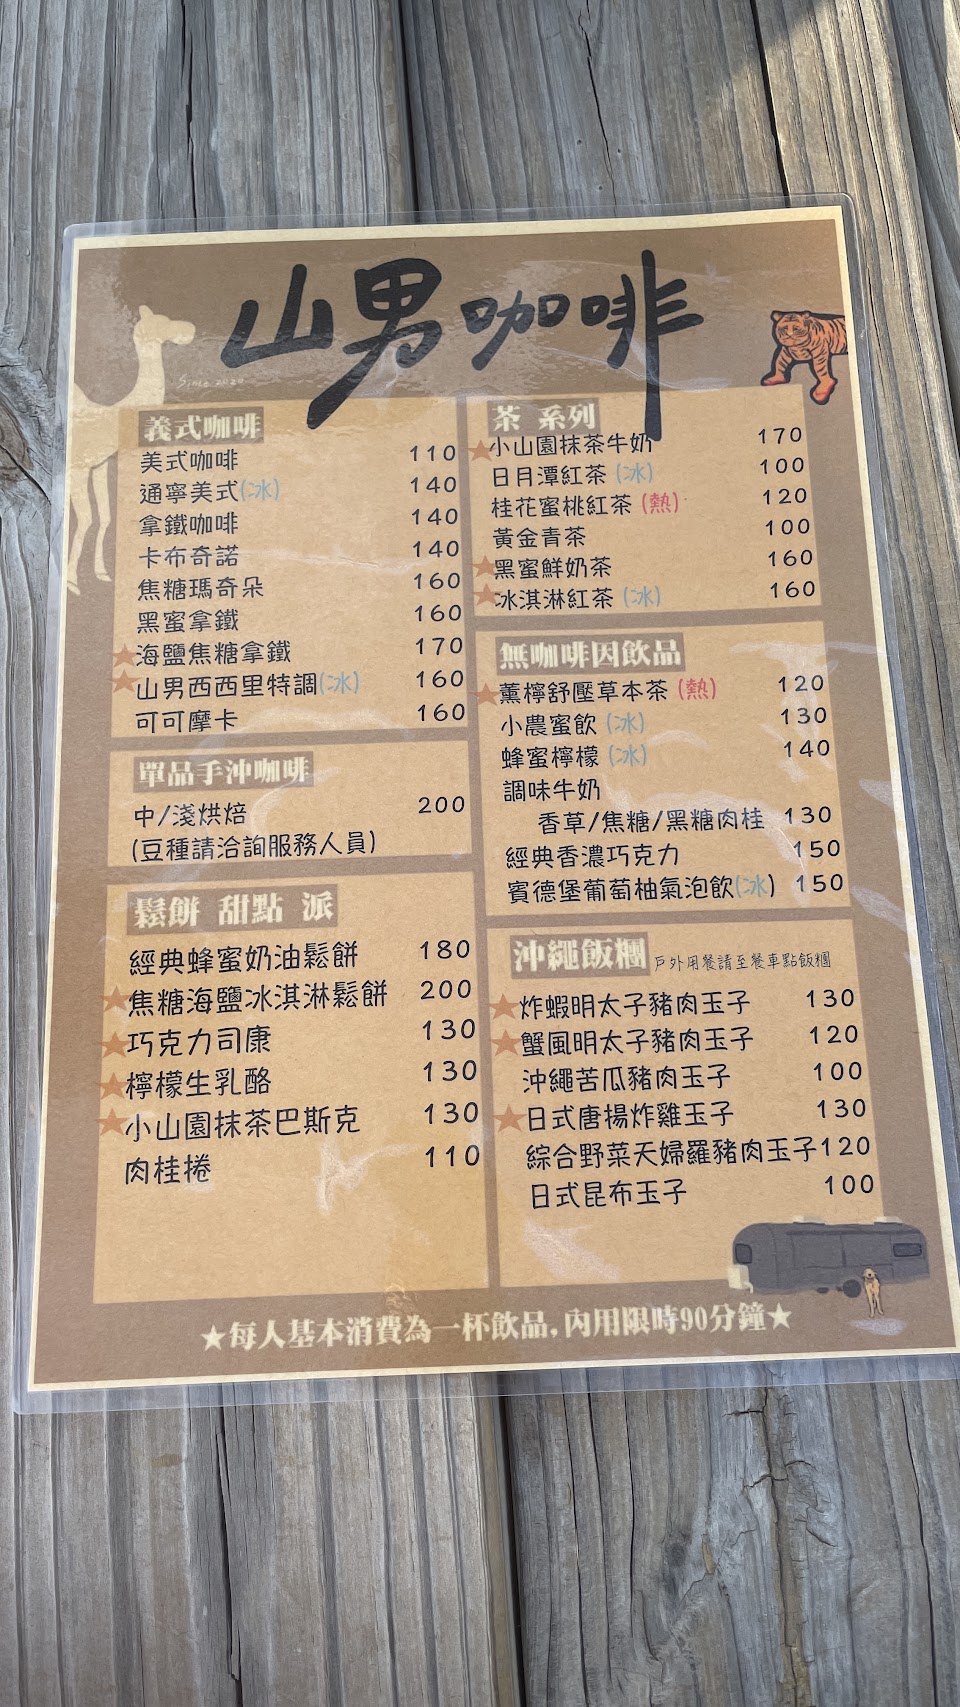 山男咖啡
Since 2020
義式咖啡
美式咖啡 110
通寧美式(冰) 140
拿鐵咖啡 140
卡布奇諾 140
焦糖瑪奇朵 160
黑蜜拿鐵 160
★海鹽焦糖拿鐵 170
★山男西西里特調(冰) 160
可可摩卡 160
單品手沖咖啡
中/淺烘焙 200
(豆種請洽詢服務人員)
鬆餅 甜點 派
經典蜂蜜奶油鬆餅 180
★焦糖海鹽冰淇淋鬆餅 200
★巧克力司康 130
★檸檬生乳酪 130
★小山園抹茶巴斯克 130
肉桂捲 110
茶 系列
★小山園抹茶牛奶 170
日月潭紅茶 (冰) 100
桂花蜜桃紅茶 (熱) 120
黃金青茶 100
★黑蜜鮮奶茶 160
★冰淇淋紅茶 (冰) 160
無咖啡因飲品
★薰檸舒壓草本茶 (熱) 120
小農蜜飲 (冰) 130
蜂蜜檸檬 (冰) 140
調味牛奶
香草/焦糖/黑糖肉桂 130
經典香濃巧克力 150
賓德堡葡萄柚氣泡飲(冰) 150
沖繩飯糰 戶外用餐請至餐車點飯糰
★炸蝦明太子豬肉玉子 130
★蟹風明太子豬肉玉子 120
沖繩苦瓜豬肉玉子 100
★日式唐揚炸雞玉子 130
綜合野菜天婦羅豬肉玉子 120
日式昆布玉子 100
★每人基本消費為一杯飲品,內用限時90分鐘★